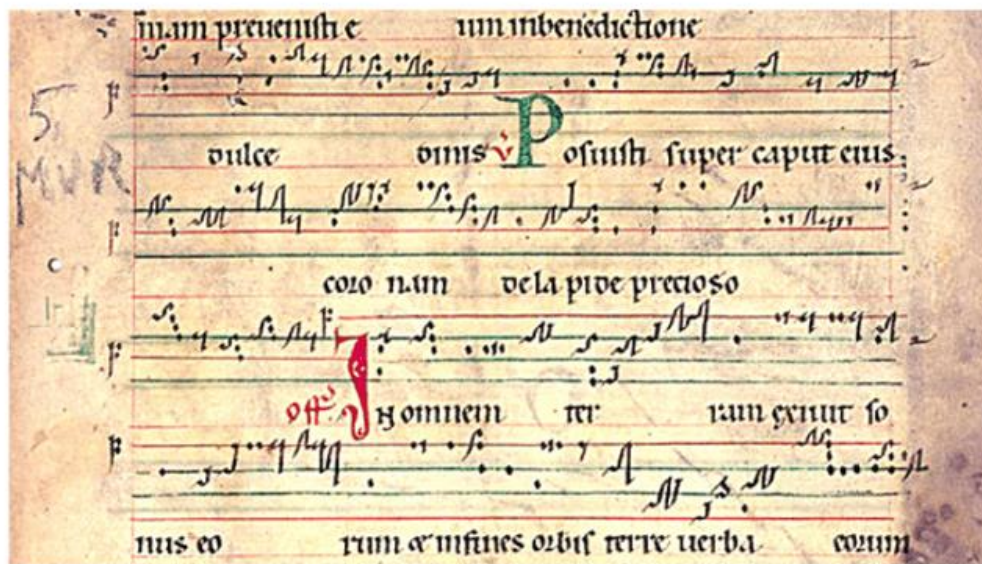 mam preuenisti e um inbenedictione
dulce dinis ℣ Posuisti super caput eius.
coro nam de la pide precioso
5
MVR
off. IN omnem ter ram exiuit so
nus eo rum & infines orbis terre uerba eorum